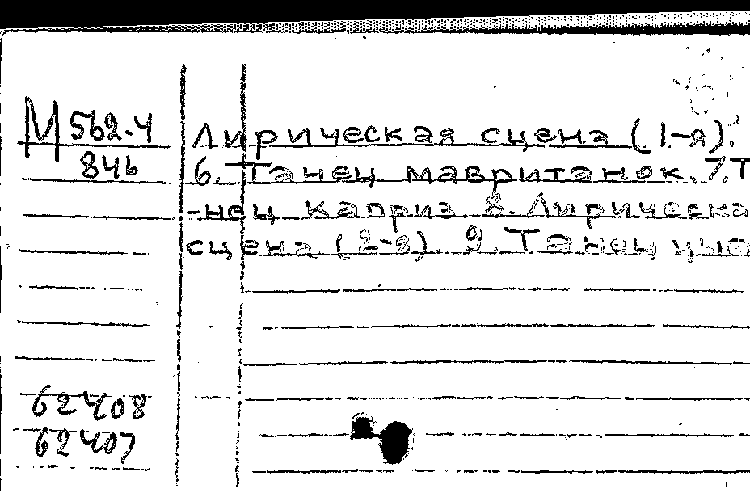 М 562.4
846
Лирическая сцена (1-я).
6. Танец мавританок. 7. Т
-нец каприз. 8. Лирическа
сцена (2-я). 9. Танец цыг
62408
62407